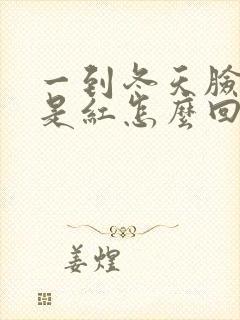 一到冬天臉
是紅怎麼回
姜煌